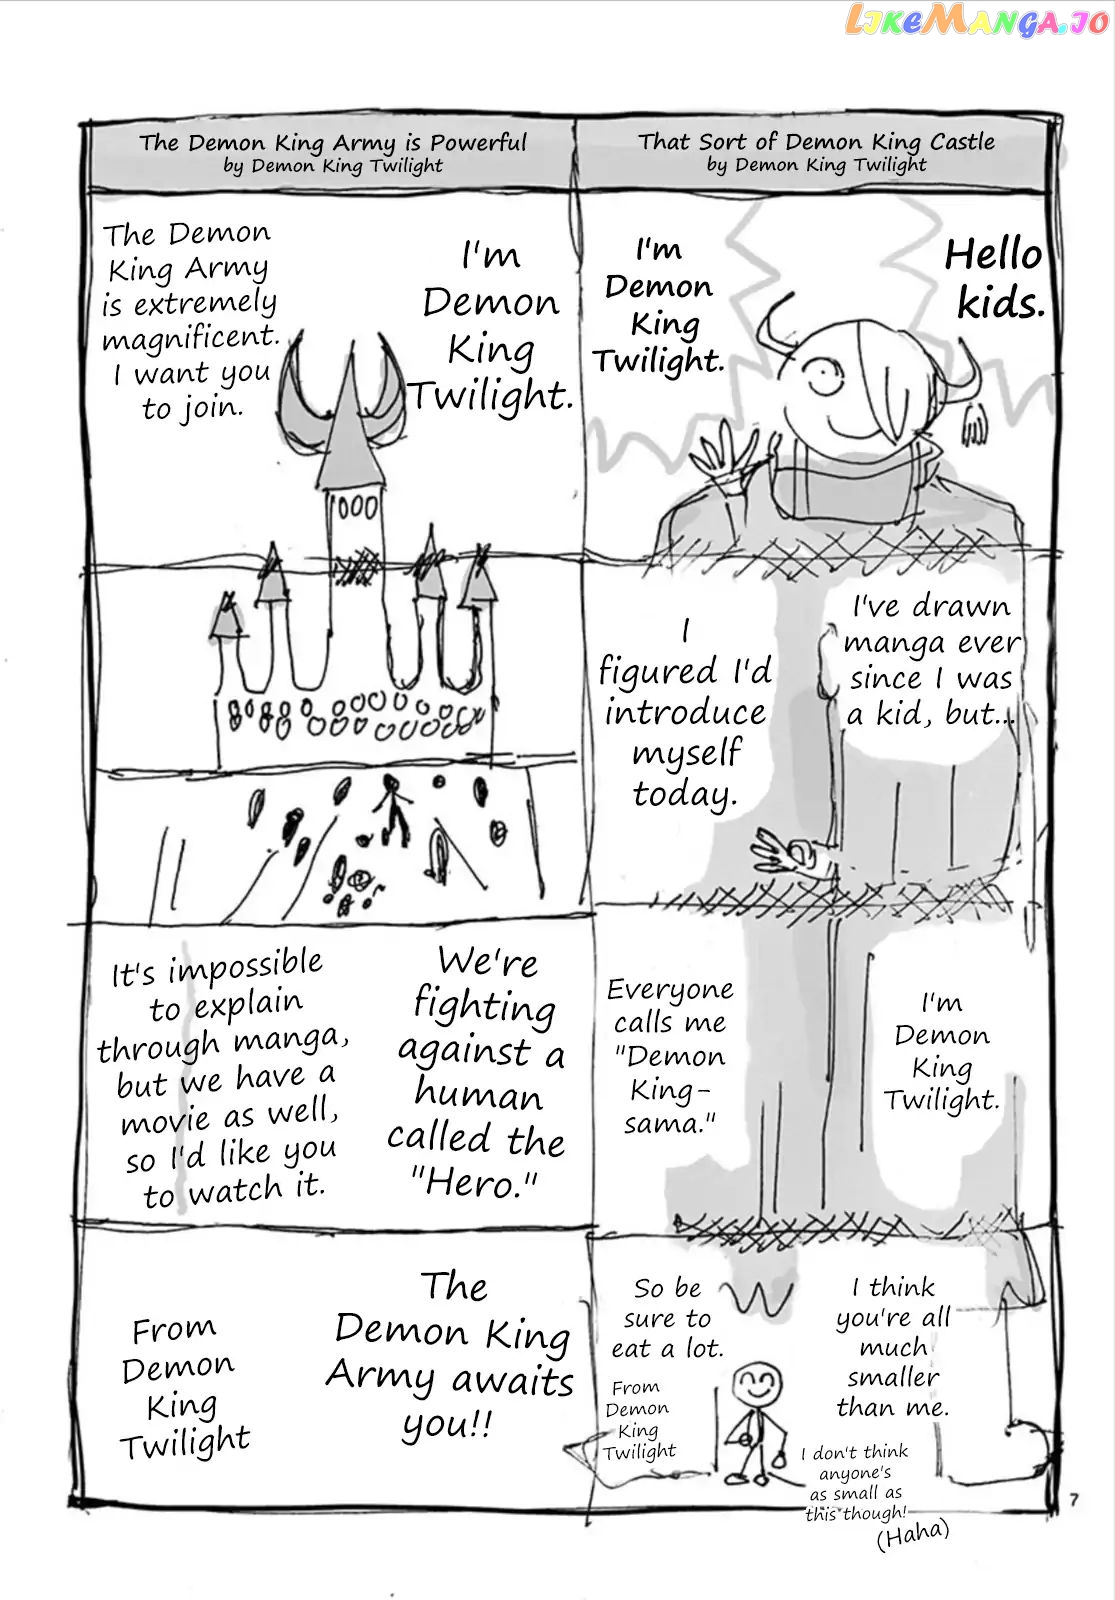 LIKEMANGA.IO
That Sort of Demon King Castle
by Demon King Twilight
Hello
kids.
I'm
Demon
King
Twilight.
I've drawn
manga ever
since I was
a kid, but...
I
figured I'd
introduce
myself
today.
I'm
Demon
King
Twilight.
Everyone
calls me
"Demon
King-
sama."
I think
you're all
much
smaller
than me.
I don't think
anyone's
as small as
this though!
(Haha)
So be
sure to
eat a lot.
From
Demon
King
Twilight
The Demon King Army is Powerful
by Demon King Twilight
I'm
Demon
King
Twilight.
The Demon
King Army
is extremely
magnificent.
I want you
to join.
We're
fighting
against a
human
called the
"Hero."
It's impossible
to explain
through manga,
but we have a
movie as well,
so I'd like you
to watch it.
The
Demon King
Army awaits
you!!
From
Demon
King
Twilight
7